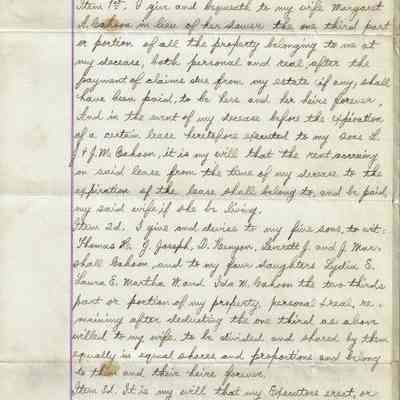 Item 1st. I give and bequeath to my wife Margaret
A. Cahoon in lieu of her dower the one third part
or portion of all the property belonging to me at
my decease, both personal and real, after the
payment of claims due from my estate if any, shall
have been paid, to be hers and her heirs forever,
And in the event of my decease before the expiration
of a certain lease heretofore executed to my sons L.
J & J. M. Cahoon, it is my will that the rent accruing
on said lease from the time of my decease to the
expiration of the lease shall belong to, and be paid
my said wife, if she be living.
Item 2d. I give and devise to my five sons, to wit:
Thomas H. J. Joseph, D. Kenyon, Leverett J. and J. Mar-
shall Cahoon, and to my four daughters Lydia E.
Laura E. Martha W. and Ida M. Cahoon the two thirds
part or portion of my property, personal & real, re-
maining after deducting the one third as above
willed to my wife, to be divided and shared by them
equally in equal shares and proportions and belong
to them and their heirs forever.
Item 3d. It is my will that my Executors erect, or